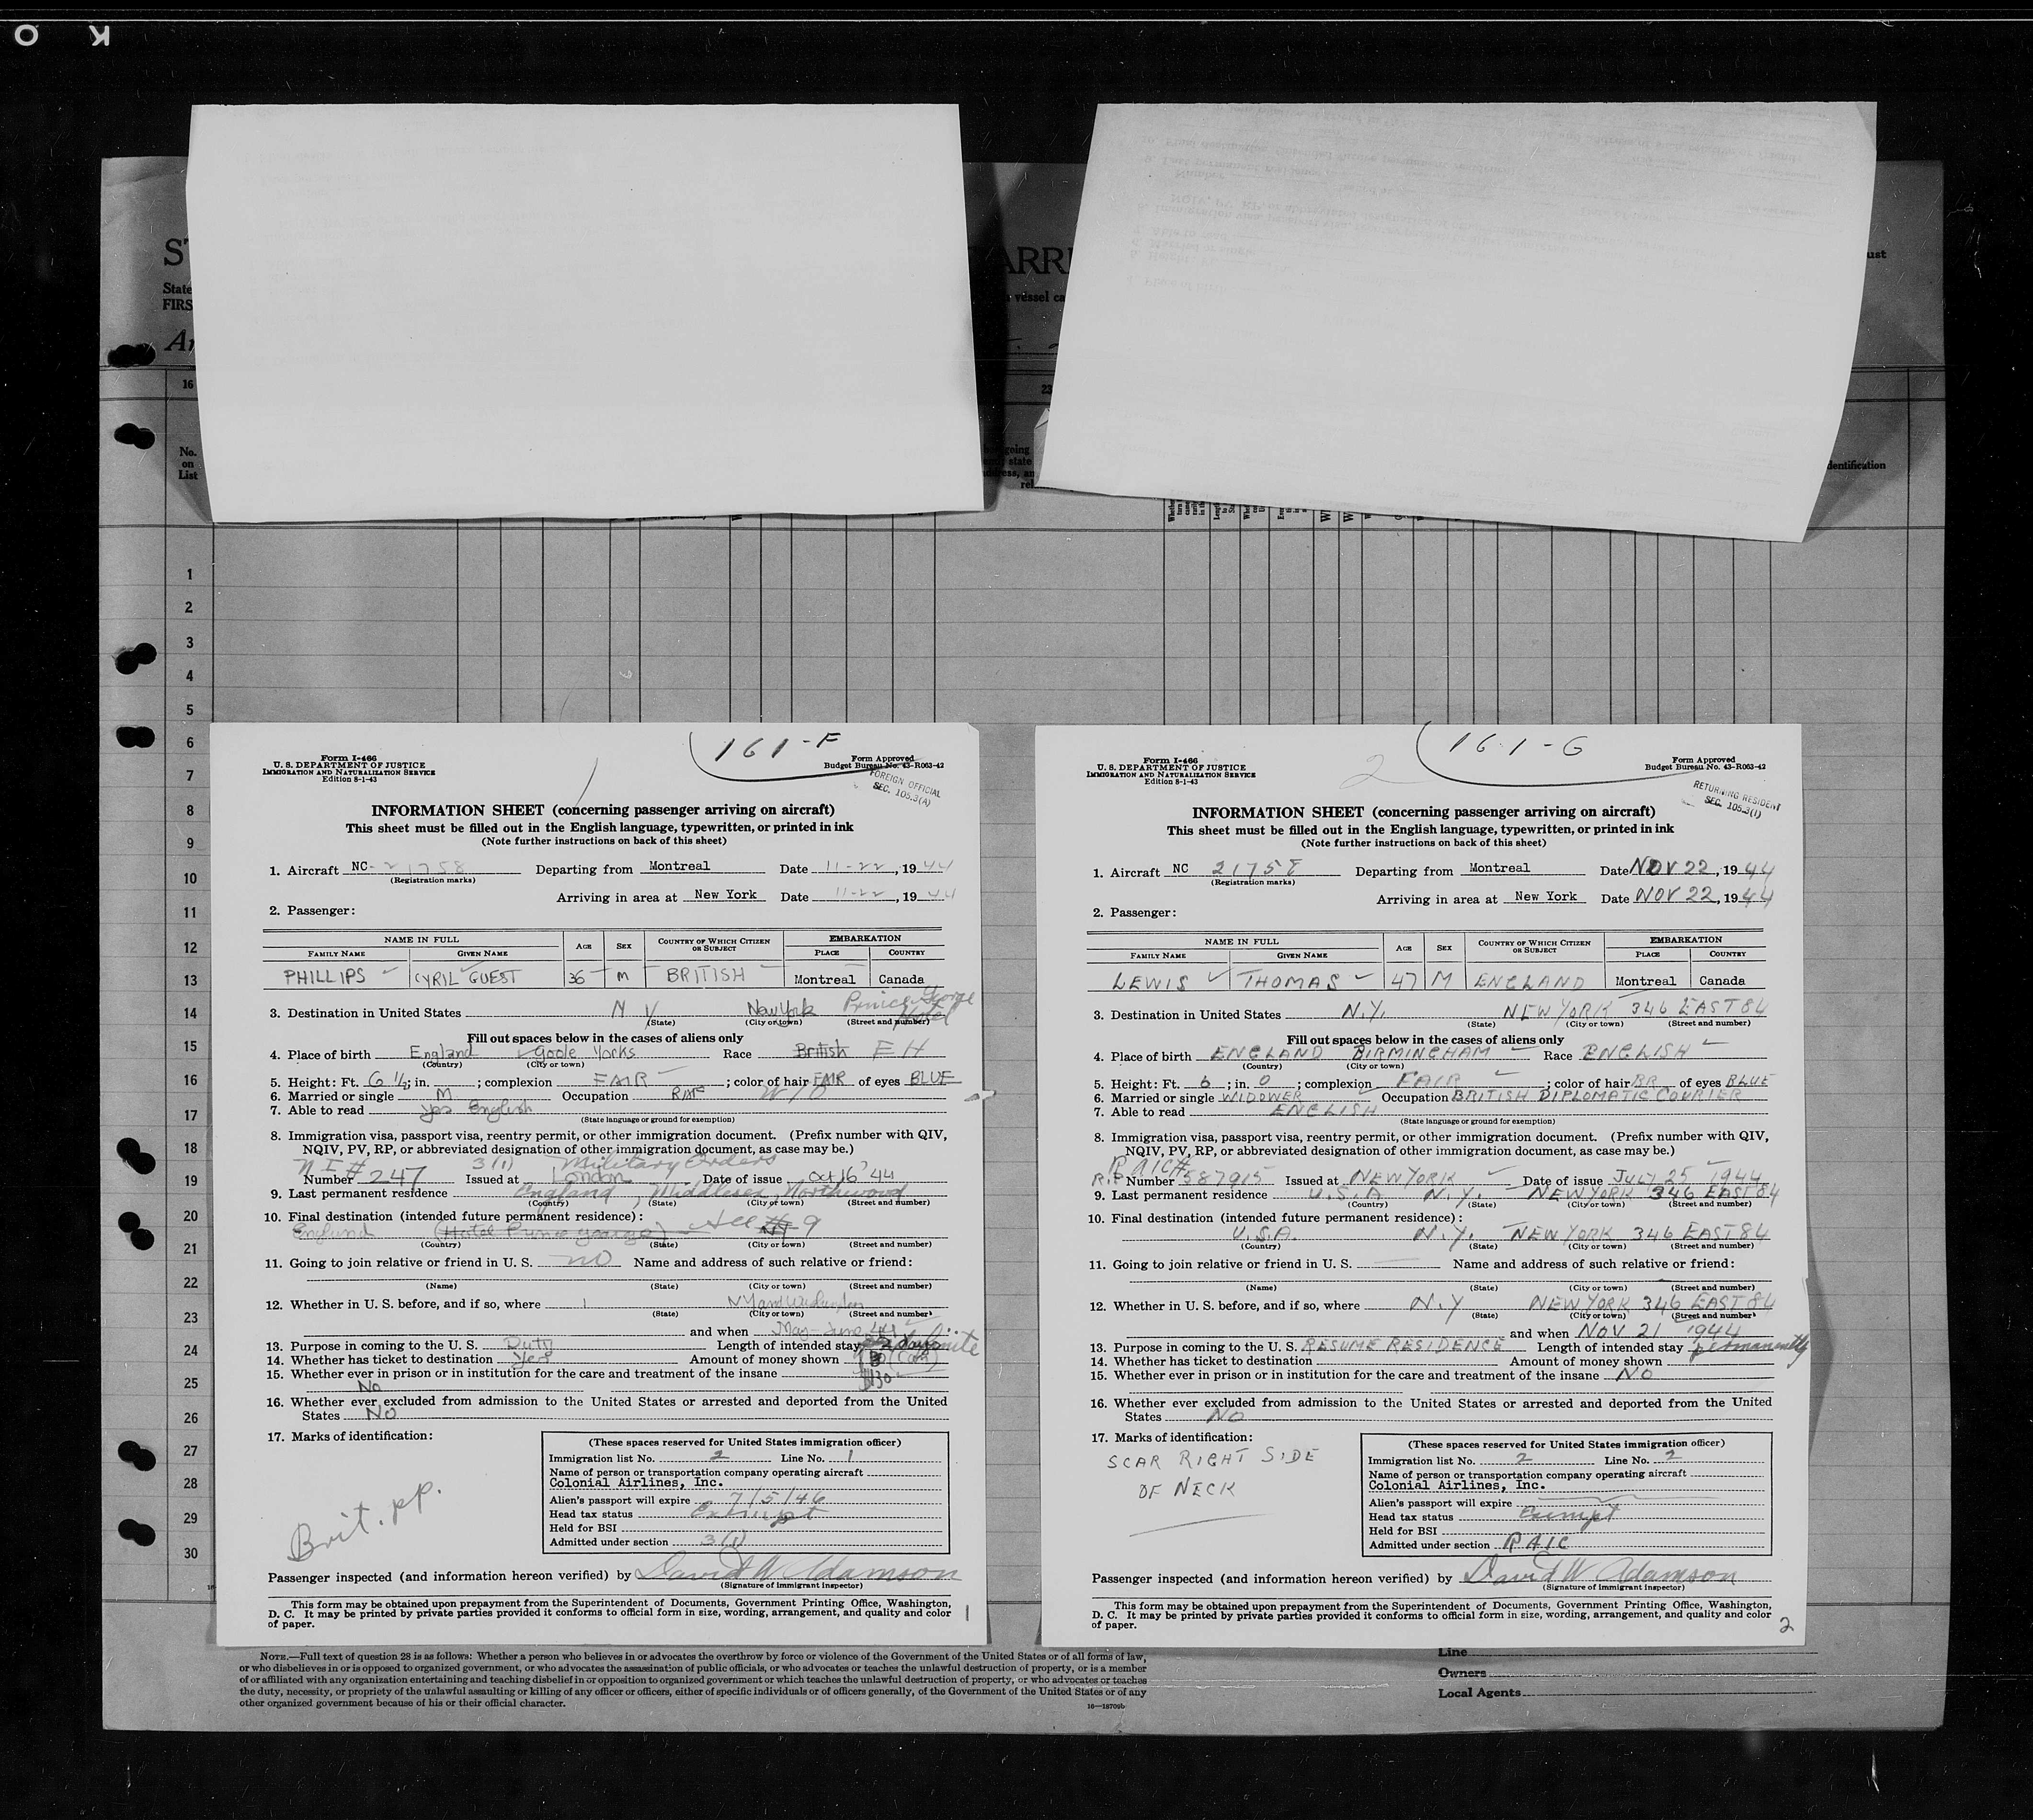 O K
ST
ARRI
ust
State
FIRS
vessel ca
16
23
No.
on
List
going
state
dentification
1
2
3
4
5
6
7
8
9
10
11
12
13
14
15
16
17
18
19
20
21
22
23
24
25
26
27
28
29
30
161-F
Form I-466
U. S. DEPARTMENT OF JUSTICE
IMMIGRATION AND NATURALIZATION SERVICE
Edition 8-1-43
Form Approved
Budget Bureau No. 43-R063-42
FOREIGN OFFICIAL
SEC. 105.3(A)
INFORMATION SHEET (concerning passenger arriving on aircraft)
This sheet must be filled out in the English language, typewritten, or printed in ink
(Note further instructions on back of this sheet)
1. Aircraft NC-21758 Departing from Montreal Date 11-22, 1944
(Registration marks)
Arriving in area at New York Date 11-22, 1944
2. Passenger:
NAME IN FULL AGE SEX COUNTRY OF WHICH CITIZEN OR SUBJECT EMBARKATION
FAMILY NAME GIVEN NAME PLACE COUNTRY
PHILLIPS CYRIL GUEST 36 M BRITISH Montreal Canada
3. Destination in United States N Y New York Prince George Hotel
(State) (City or town) (Street and number)
Fill out spaces below in the cases of aliens only
4. Place of birth England Goole Yorks Race British EH
(Country) (City or town)
5. Height: Ft. 6 1/4; in. ; complexion FAIR; color of hair FAIR of eyes BLUE
6. Married or single M Occupation RAF W/O
7. Able to read yes English
(State language or ground for exemption)
8. Immigration visa, passport visa, reentry permit, or other immigration document. (Prefix number with QIV,
NQIV, PV, RP, or abbreviated designation of other immigration document, as case may be.)
N I # 3(1) Military Orders
Number 247 Issued at London Date of issue Oct 16 '44
9. Last permanent residence England, Middlesex, Northwood
(Country) (State) (City or town) (Street and number)
10. Final destination (intended future permanent residence):
England (Hotel Prince George) See #9
(Country) (State) (City or town) (Street and number)
11. Going to join relative or friend in U. S. NO Name and address of such relative or friend:
(Name) (State) (City or town) (Street and number)
12. Whether in U. S. before, and if so, where NY and Washington
(State) (City or town) (Street and number)
and when May-June 44
13. Purpose in coming to the U. S. Duty Length of intended stay
14. Whether has ticket to destination Yes Amount of money shown
15. Whether ever in prison or in institution for the care and treatment of the insane $130
No
16. Whether ever excluded from admission to the United States or arrested and deported from the United
States No
17. Marks of identification:
Brit. pp.
(These spaces reserved for United States immigration officer)
Immigration list No. 2 Line No. 1
Name of person or transportation company operating aircraft
Colonial Airlines, Inc.
Alien's passport will expire 7/5/46
Head tax status Exempt
Held for BSI
Admitted under section 3(1)
Passenger inspected (and information hereon verified) by David W Adamson
(Signature of immigrant inspector)
This form may be obtained upon prepayment from the Superintendent of Documents, Government Printing Office, Washington,
D. C. It may be printed by private parties provided it conforms to official form in size, wording, arrangement, and quality and color
of paper.
1
161-G
2
Form I-466
U. S. DEPARTMENT OF JUSTICE
IMMIGRATION AND NATURALIZATION SERVICE
Edition 8-1-43
Form Approved
Budget Bureau No. 43-R063-42
RETURNING RESIDENT
SEC. 105.3(1)
INFORMATION SHEET (concerning passenger arriving on aircraft)
This sheet must be filled out in the English language, typewritten, or printed in ink
(Note further instructions on back of this sheet)
1. Aircraft NC 21758 Departing from Montreal Date NOV 22, 1944
(Registration marks)
Arriving in area at New York Date NOV 22, 1944
2. Passenger:
NAME IN FULL AGE SEX COUNTRY OF WHICH CITIZEN OR SUBJECT EMBARKATION
FAMILY NAME GIVEN NAME PLACE COUNTRY
LEWIS THOMAS 47 M ENGLAND Montreal Canada
3. Destination in United States N.Y. NEW YORK 346 EAST 84
(State) (City or town) (Street and number)
Fill out spaces below in the cases of aliens only
4. Place of birth ENGLAND BIRMINGHAM Race ENGLISH
(Country) (City or town)
5. Height: Ft. 6; in. 0; complexion FAIR; color of hair BR of eyes BLUE
6. Married or single WIDOWER Occupation BRITISH DIPLOMATIC COURIER
7. Able to read ENGLISH
(State language or ground for exemption)
8. Immigration visa, passport visa, reentry permit, or other immigration document. (Prefix number with QIV,
NQIV, PV, RP, or abbreviated designation of other immigration document, as case may be.)
RAIC#
R.P. Number 587915 Issued at NEW YORK Date of issue July 25 1944
9. Last permanent residence U.S.A N.Y. NEW YORK 346 EAST 84
(Country) (State) (City or town) (Street and number)
10. Final destination (intended future permanent residence):
U.S.A. N.Y. NEW YORK 346 EAST 84
(Country) (State) (City or town) (Street and number)
11. Going to join relative or friend in U. S. Name and address of such relative or friend:
(Name) (State) (City or town) (Street and number)
12. Whether in U. S. before, and if so, where N.Y NEW YORK 346 EAST 84
(State) (City or town) (Street and number)
and when NOV 21 1944
13. Purpose in coming to the U. S. RESUME RESIDENCE Length of intended stay permanently
14. Whether has ticket to destination Amount of money shown
15. Whether ever in prison or in institution for the care and treatment of the insane NO
16. Whether ever excluded from admission to the United States or arrested and deported from the United
States NO
17. Marks of identification:
SCAR RIGHT SIDE
OF NECK
(These spaces reserved for United States immigration officer)
Immigration list No. 2 Line No. 2
Name of person or transportation company operating aircraft
Colonial Airlines, Inc.
Alien's passport will expire
Head tax status Exempt
Held for BSI
Admitted under section RAIC
Passenger inspected (and information hereon verified) by David W Adamson
(Signature of immigrant inspector)
This form may be obtained upon prepayment from the Superintendent of Documents, Government Printing Office, Washington,
D. C. It may be printed by private parties provided it conforms to official form in size, wording, arrangement, and quality and color
of paper.
2
NOTE.—Full text of question 28 is as follows: Whether a person who believes in or advocates the overthrow by force or violence of the Government of the United States or of all forms of law,
or who disbelieves in or is opposed to organized government, or who advocates the assassination of public officials, or who advocates or teaches the unlawful destruction of property, or is a member
of or affiliated with any organization entertaining and teaching disbelief in or opposition to organized government or which teaches the unlawful destruction of property, or who advocates or teaches
the duty, necessity, or propriety of the unlawful assaulting or killing of any officer or officers, either of specific individuals or of officers generally, of the Government of the United States or of any
other organized government because of his or their official character.
16—18709b
Line
Owners
Local Agents